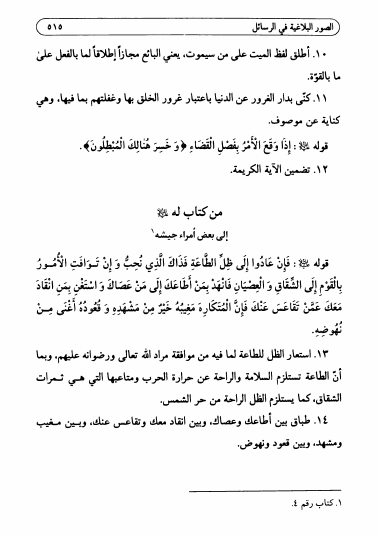 الصور البلاغية في الرسائل ٥١٥
١٠. أطلق لفظ الميت على من سيموت، يعني البائع مجازاً إطلاقاً لما بالفعل على
ما بالقوّة.
١١. كنّى بدار الغرور عن الدنيا باعتبار غرور الخلق بها وغفلتهم بما فيها، وهي
كناية عن موصوف.
قوله ﷺ: إِذَا وَقَعَ الْأَمْرُ بِفَصْلِ الْقَضَاءِ ﴿وَ خَسِرَ هُنَالِكَ الْمُبْطِلُونَ﴾.
١٢. تضمين الآية الكريمة.
من كتاب له ﷺ
إلى بعض أمراء جيشه١
قوله ﷺ: فَإِنْ عَادُوا إِلَى ظِلِّ الطَّاعَةِ فَذَاكَ الَّذِي نُحِبُّ وَ إِنْ تَوَافَتِ الْأُمُورُ
بِالْقَوْمِ إِلَى الشِّقَاقِ وَ الْعِصْيَانِ فَانْهَدْ بِمَنْ أَطَاعَكَ إِلَى مَنْ عَصَاكَ وَ اسْتَغْنِ بِمَنِ انْقَادَ
مَعَكَ عَمَّنْ تَقَاعَسَ عَنْكَ فَإِنَّ الْمُتَكَارِهَ مَغِيبُهُ خَيْرٌ مِنْ مَشْهَدِهِ وَ قُعُودُهُ أَغْنَى مِنْ
نُهُوضِهِ.
١٣. استعار الظل للطاعة لما فيه من موافقة مراد الله تعالى ورضوانه عليهم، وبما
أنّ الطاعة تستلزم السلامة والراحة عن حرارة الحرب ومتاعبها التي هي ثمرات
الشقاق، كما يستلزم الظل الراحة من حر الشمس.
١٤. طباق بين أطاعك وعصاك، وبين انقاد معك وتقاعس عنك، وبين مغيب
ومشهد، وبين قعود ونهوض.
١. كتاب رقم ٤.